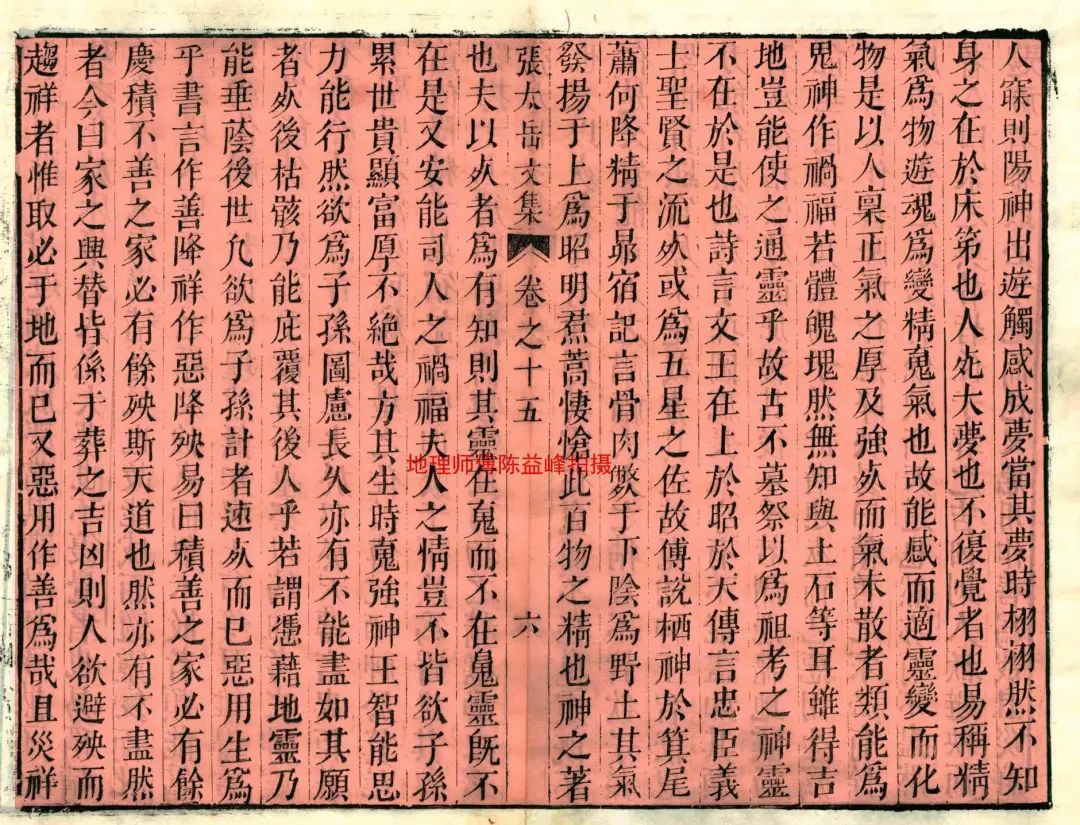 人寐則陽神出遊觸感成夢當其夢時栩栩然不知
身之在於床第也人死大夢也不復覺者也易稱精
氣爲物遊魂爲變精䰟氣也故能感而適靈變而化
物是以人禀正氣之厚及強死而氣未散者類能爲
鬼神作禍福若體魄塊然無知與土石等耳雖得吉
地豈能使之通靈乎故古不墓祭以爲祖考之神靈
不在於是也詩言文王在上於昭於天傳言忠臣義
士聖賢之流死或爲五星之佐故傅說栖神於箕尾
蕭何降精于昴宿記言骨肉斃于下陰爲野土其氣
發揚于上爲昭明焄蒿悽愴此百物之精也神之著
張太岳文集 卷之十五 六
也夫以死者爲有知則其靈在䰟而不在魄靈旣不
在是又安能司人之禍福夫人之情豈不皆欲子孫
累世貴顯富厚不絶哉方其生時䰟強神王智能思
力能行然欲爲子孫圖慮長久亦有不能盡如其願
者死後枯骸乃能庇覆其後人乎若謂憑藉地靈乃
能垂蔭後世凢欲爲子孫計者速死而已惡用生爲
乎書言作善降祥作惡降殃易曰積善之家必有餘
慶積不善之家必有餘殃斯天道也然亦有不盡然
者今曰家之興替皆係于葬之吉凶則人欲避殃而
趨祥者惟取必于地而已又惡用作善爲哉且災祥
地理师傅陈益峰拍摄